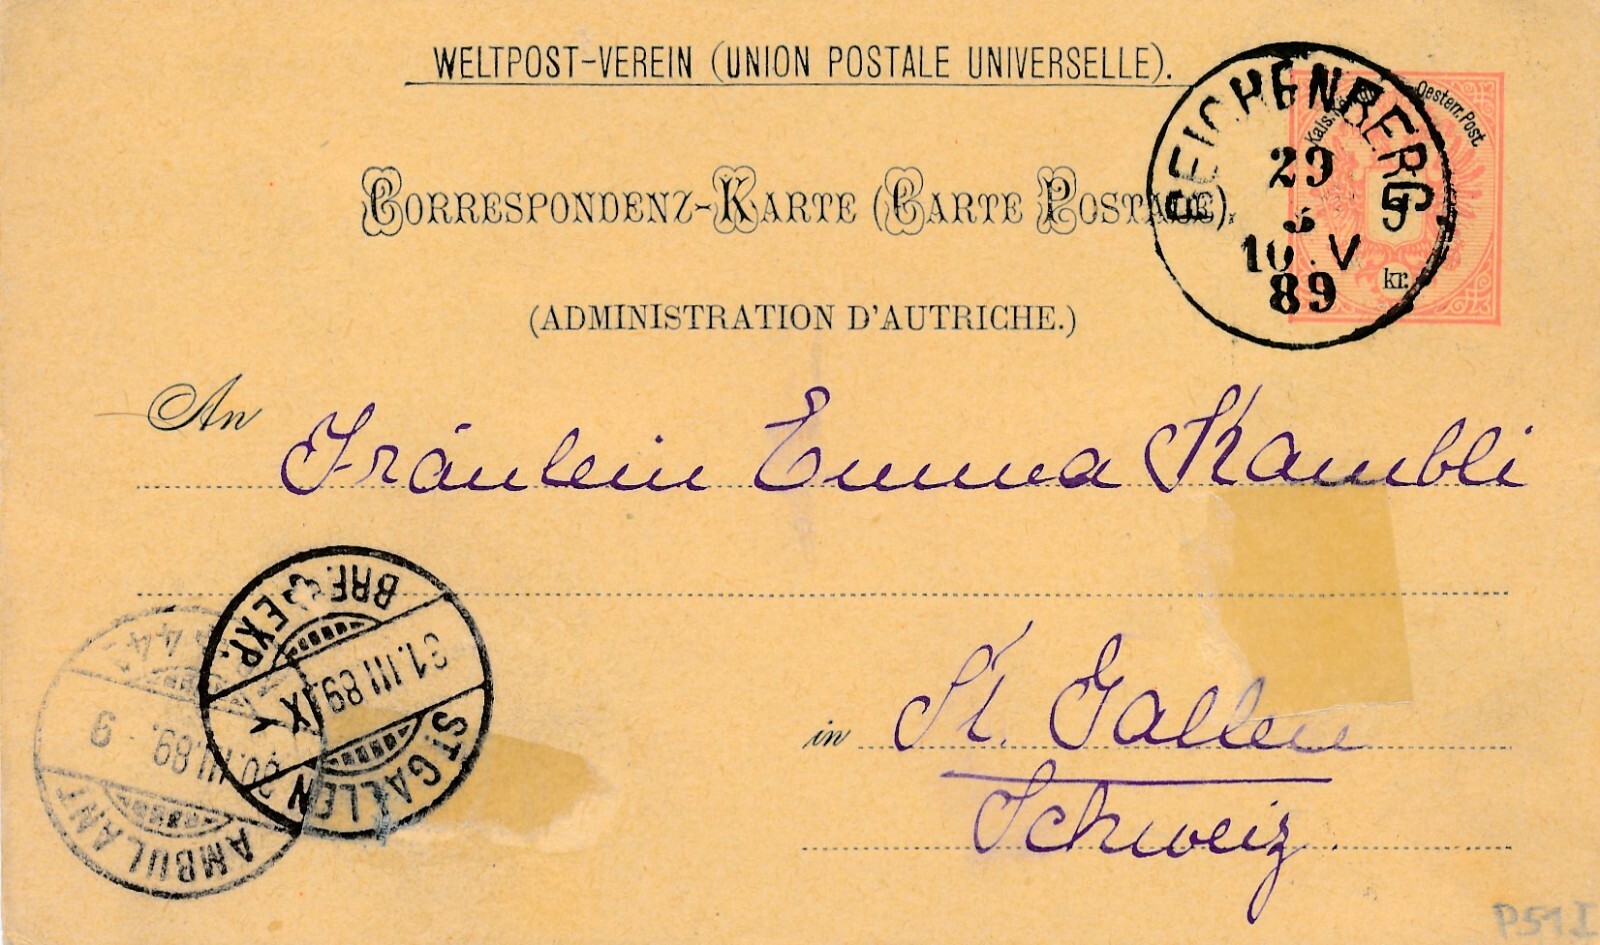 WELTPOST-VEREIN (UNION POSTALE UNIVERSELLE).
Kais. Oesterr. Post.
CORRESPONDENZ-KARTE (CARTE POSTALE).
5 kr.
REICHENBERG
29
3
10 . V
89
(ADMINISTRATION D'AUTRICHE.)
An Fräulein Emma Kambli
in St. Gallen
Schweiz
ST. GALLEN
31.III 89. IX
BRF. EXP.
AMBULANT
30.III.89. - 9
P51 I